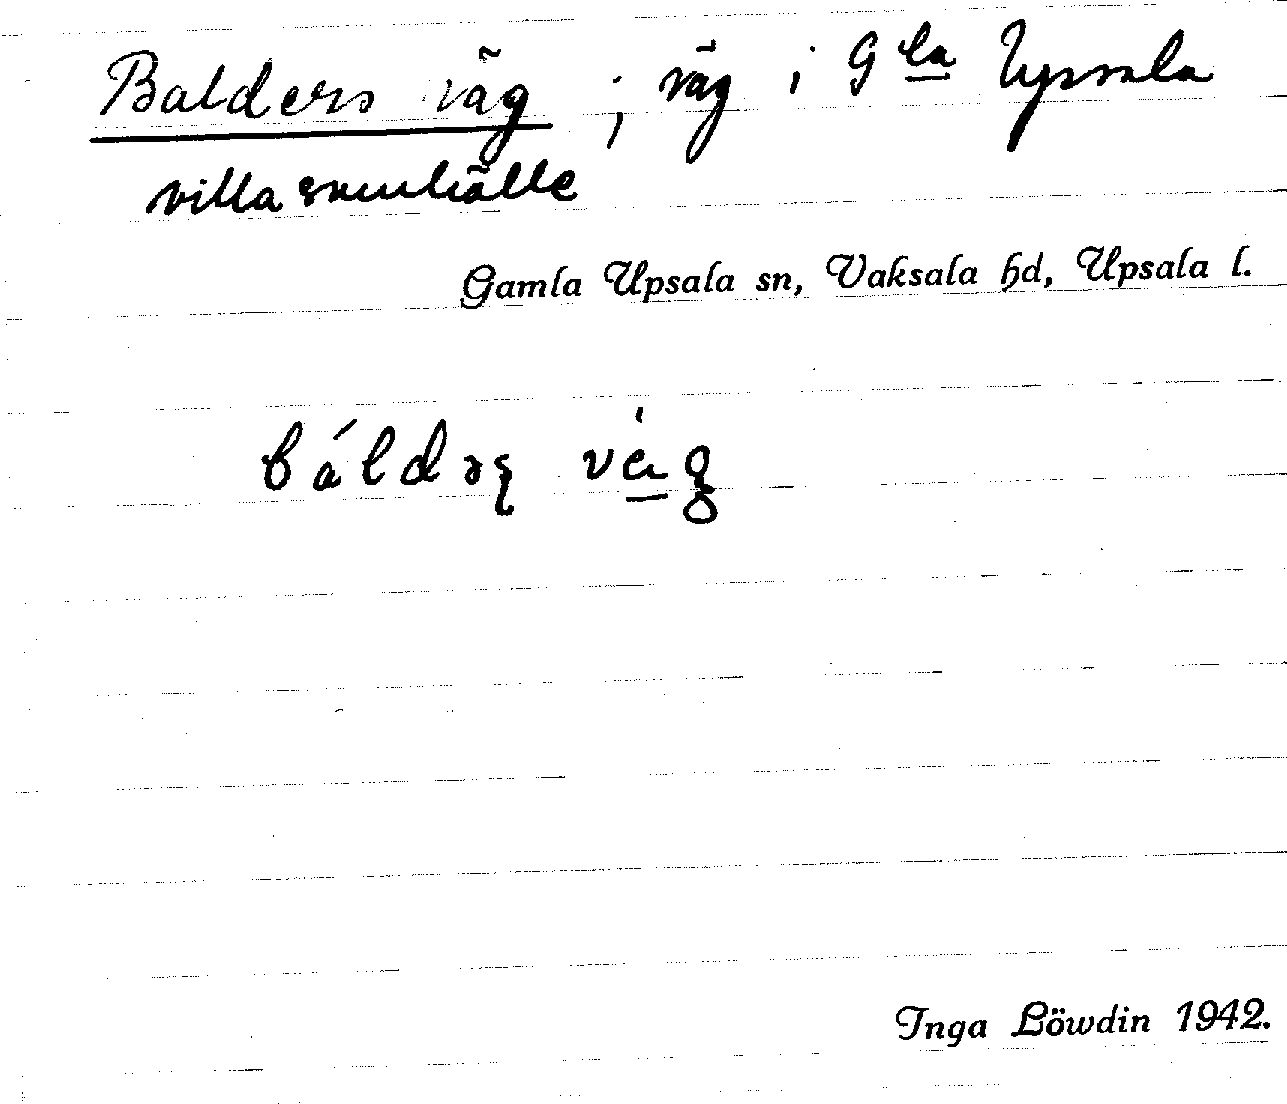 Balders väg ; väg i Gla Upsala
villasamhälle
Gamla Upsala sn, Vaksala hd, Upsala l.
báldəʂ vɛ́g
Inga Löwdin 1942.